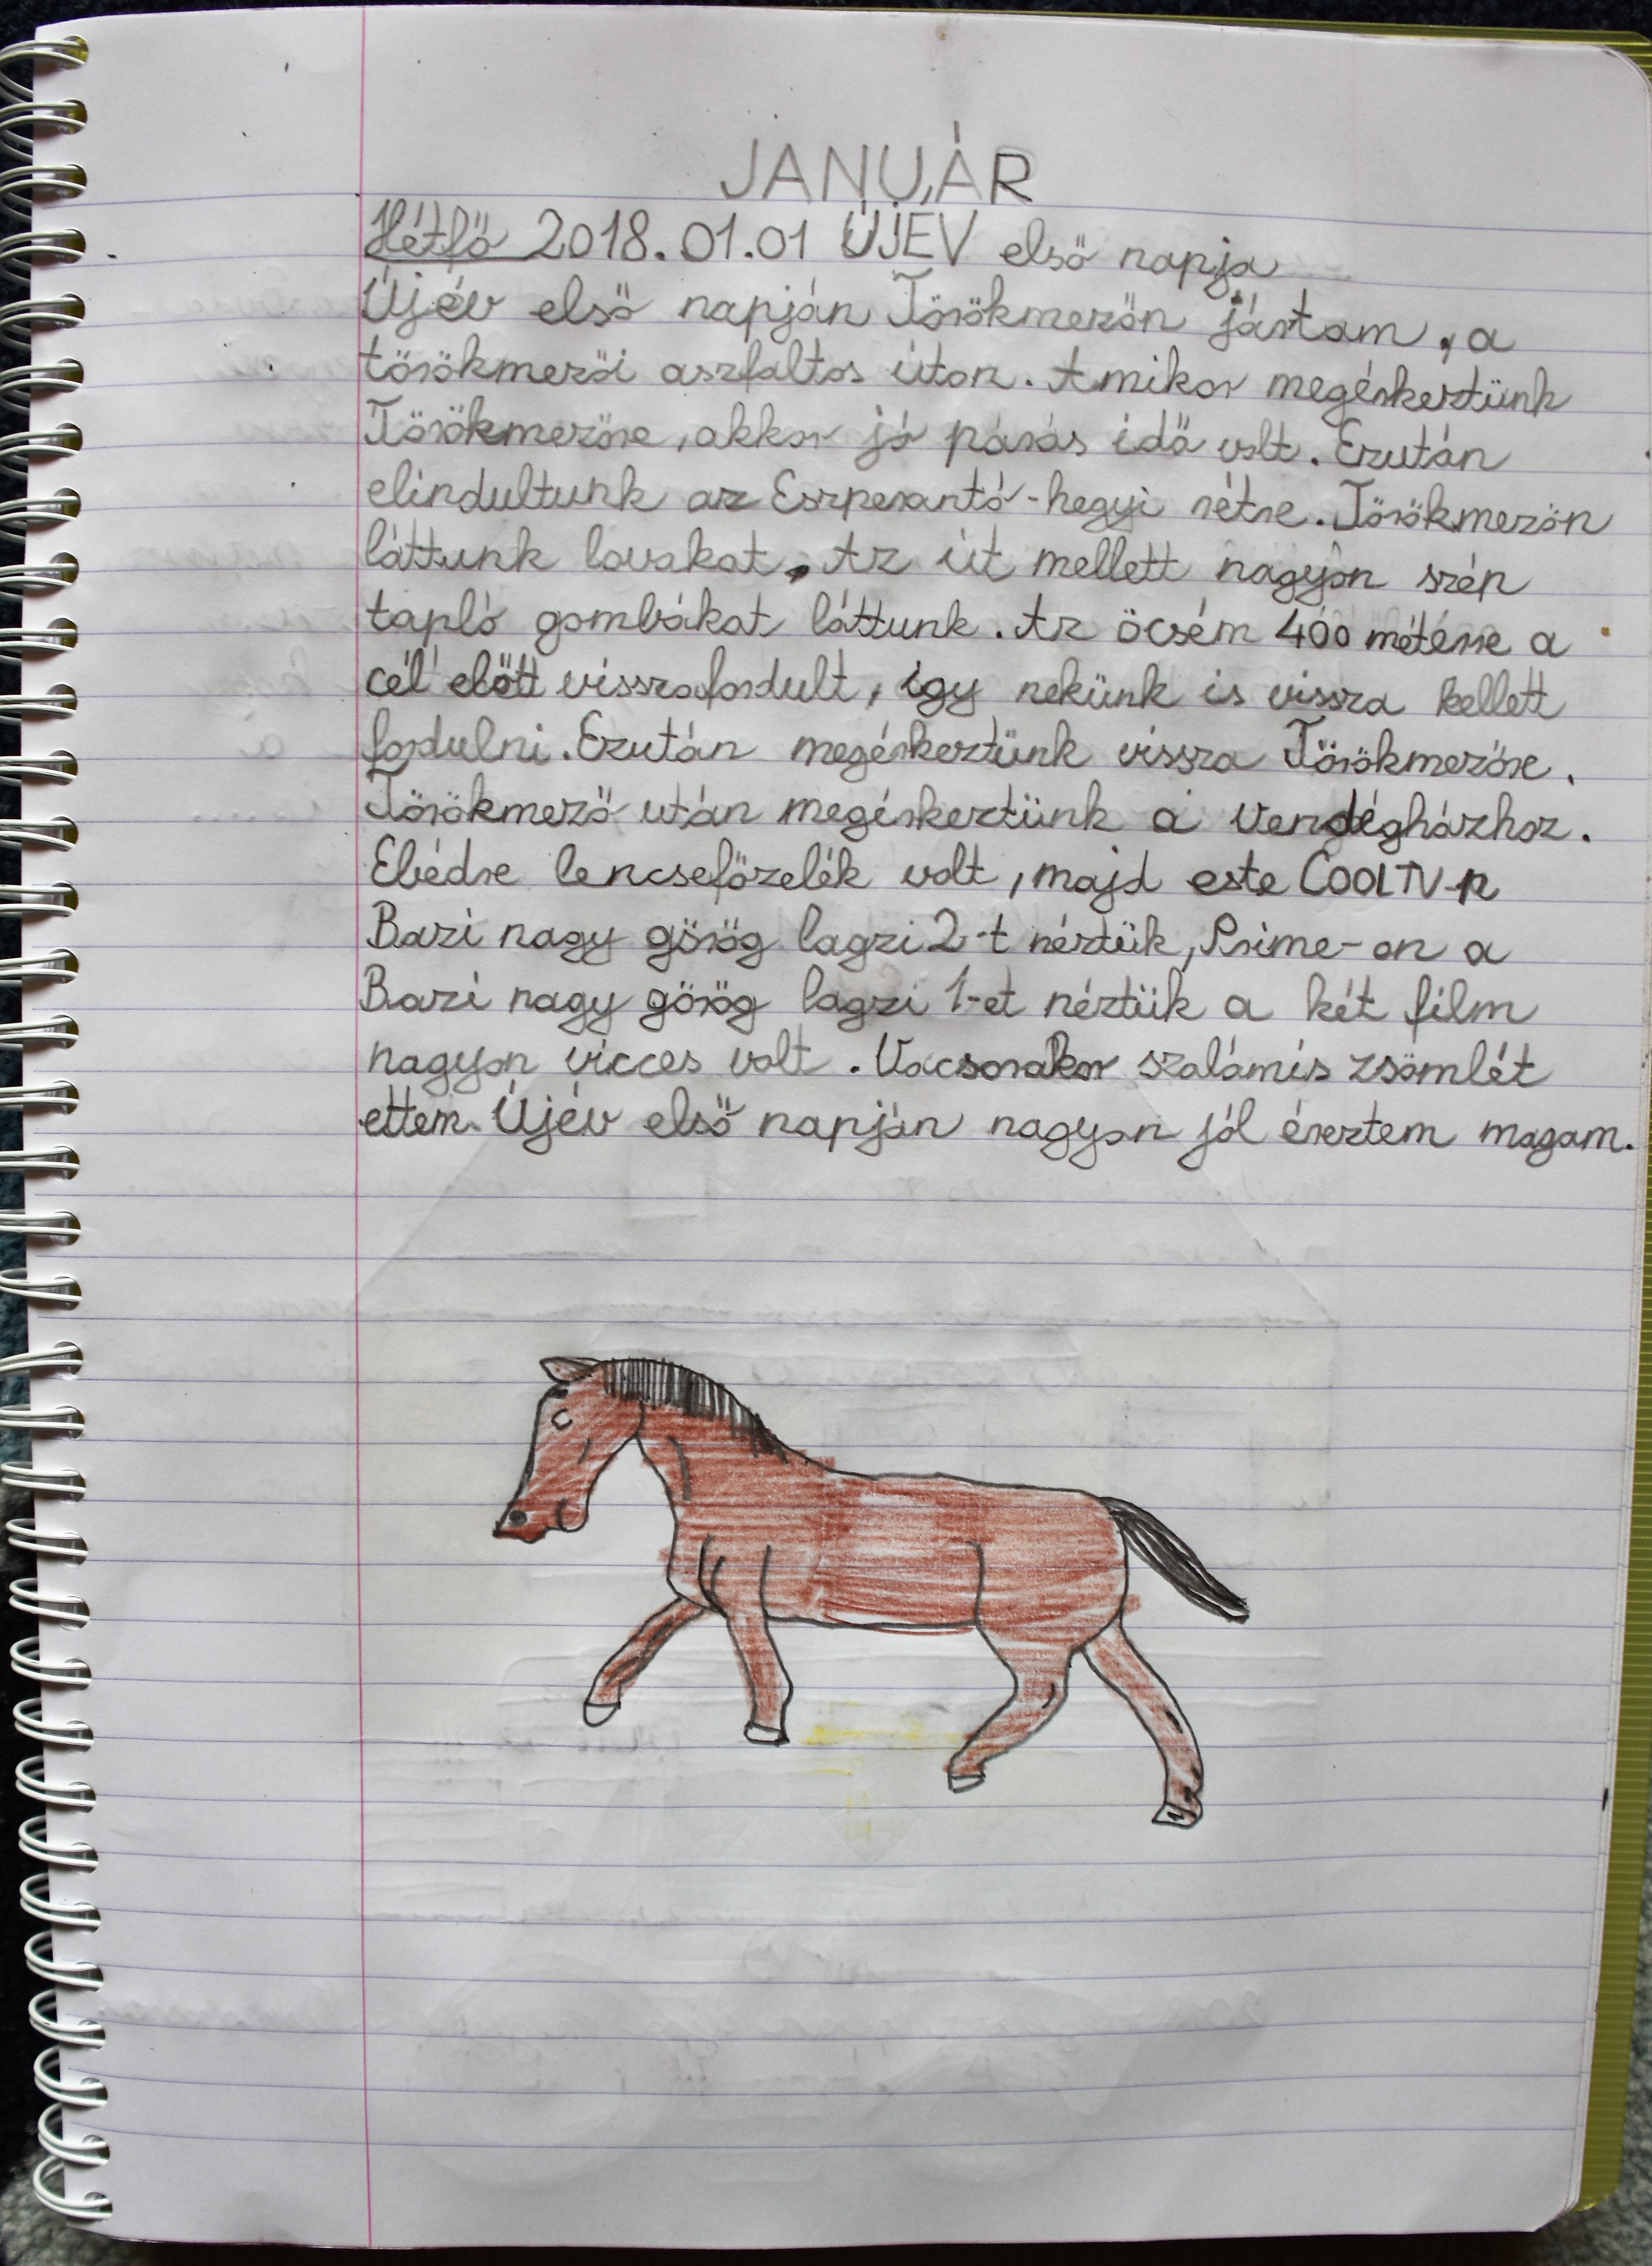 JANUÁR
Hétfő 2018.01.01 ÚJÉV első napja
Újév első napján Törökmezőn jártam, a
törökmezői aszfaltos úton. Amikor megérkeztünk
Törökmezőre, akkor jó párás idő volt. Ezután
elindultunk az Eszperantó-hegyi rétre. Törökmezőn
láttunk lovakat. Az út mellett nagyon szép
tapló gombákat láttunk. Az öcsém 400 méterre a
cél előtt visszafordult, így nekünk is vissza kellett
fordulni. Ezután megérkeztünk vissza Törökmezőre.
Törökmező után megérkeztünk a Vendégházhoz.
Ebédre lencsefőzelék volt, majd este COOLTV-n
Bazi nagy görög lagzi 2-t néztük, Prime-on a
Bazi nagy görög lagzi 1-et néztük a két film
nagyon vicces volt. Vacsorakor szalámis zsömlét
ettem. Újév első napján nagyon jól éreztem magam.